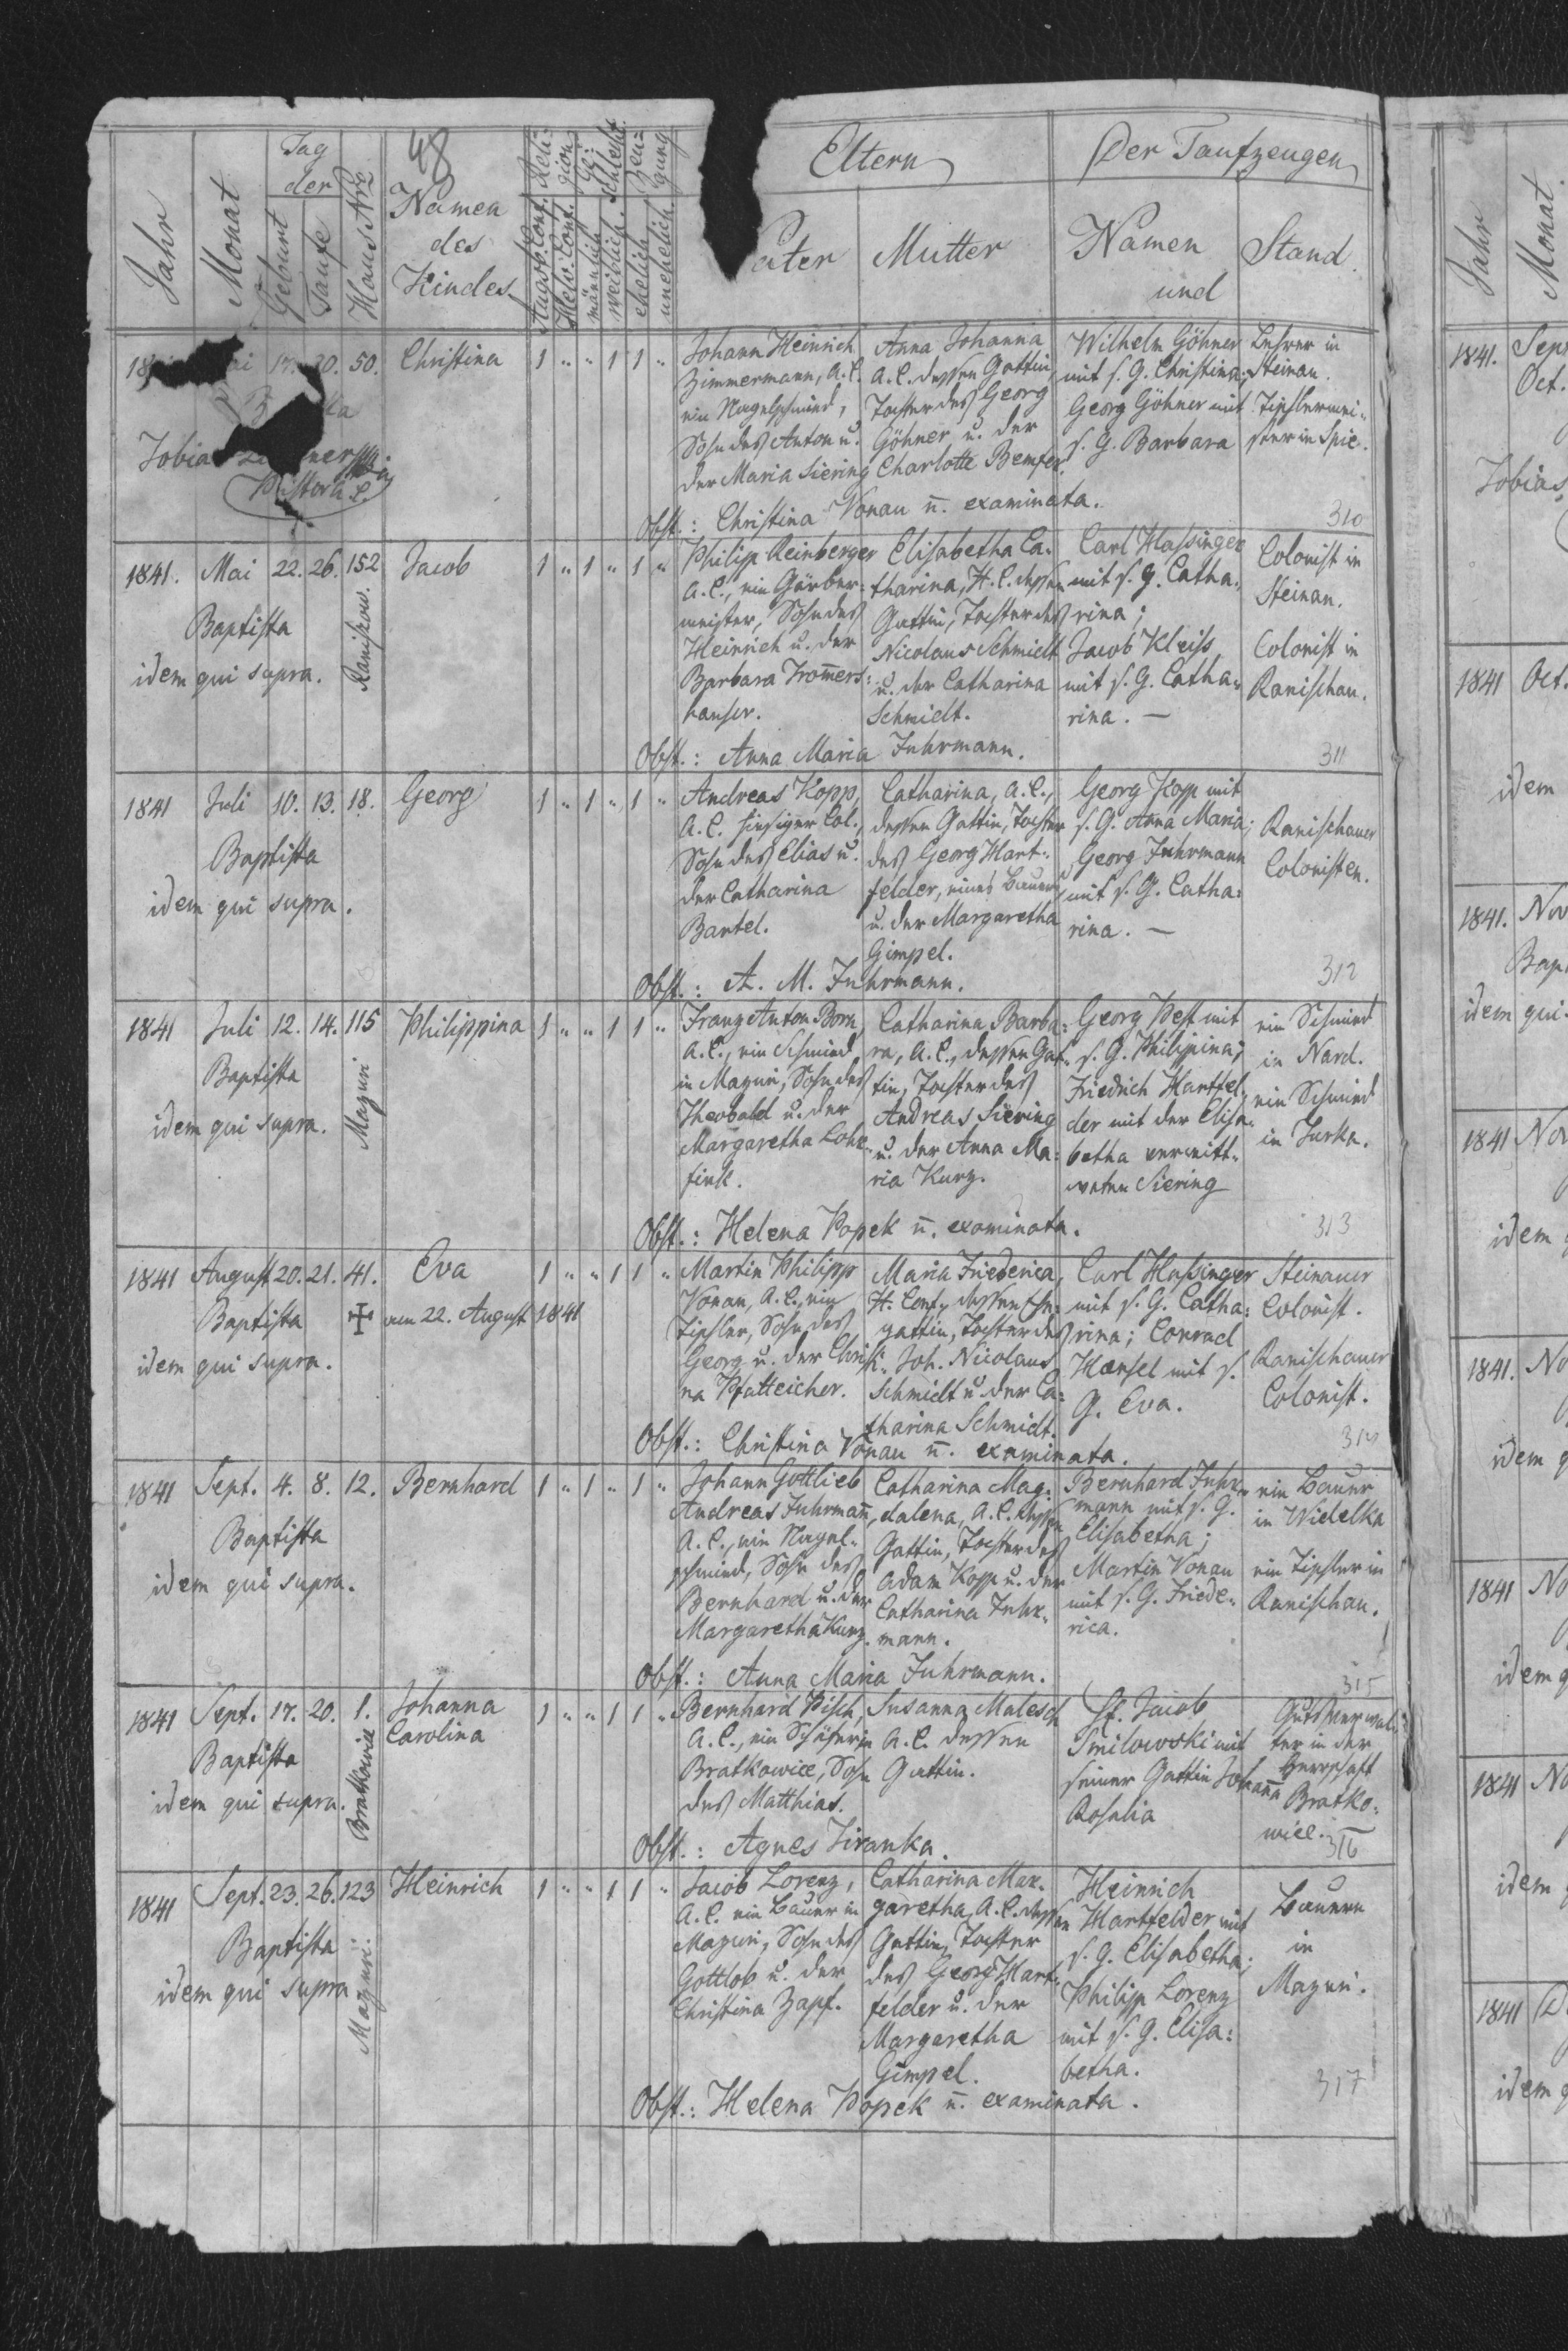 48
Jahr
Monat
Tag
der
Geburt
Taufe
Haus Nro
Namen
des
Kindes
Reli-
gion
Augsb. Conf.
Helv. Conf.
Ge-
schlecht.
männlich
weiblich.
Zeu-
gung
ehelich
unehelich.
Eltern
Mutter
Der Taufzeugen
Namen
und
Stand.
17. 20. 50. Christina 1 " " 1 1 "
Pastor A. C.
Johann Heinrich
Zimmermann, A. C.
ein Nagelschmied,
Sohn des Anton u.
der Maria Siering
Anna Johanna
A. C. dessen Gattin,
Tochter des Georg
Göhner u. der
Charlotte Bemfer.
Wilhelm Göhner
mit s. G. Christina;
Georg Göhner mit
s. G. Barbara
Lehrer in
Steinau.
Tischlermei-
ster in Spie.
Obst.: Christina Vonau n. examinata.
310
1841. Mai 22. 26. 152 Jacob 1 " 1 " 1 "
Baptista
idem qui supra.
Ranischow.
Philip Reinberger
A. C., ein Gärber-
meister, Sohn des
Heinrich u. der
Barbara Tromers-
hauser.
Elisabetha Ca-
tharina, H. C. dessen
Gattin, Tochter des
Nicolaus Schmidt
u. der Catharina
Schmidt.
Carl Hassinger
mit s. G. Catha-
rina;
Jacob Kleiss
mit s. G. Catha-
rina. —
Colonist in
Steinau.
Colonist in
Ranischau.
Obst.: Anna Maria Fuhrmann.
311
1841 Juli 10. 13. 18. Georg 1 " 1 " 1 "
Baptista
idem qui supra.
Andreas Kopp,
A. C. hiesiger Col.,
Sohn des Elias u.
der Catharina
Bartel.
Catharina, A. C.,
dessen Gattin, Tochter
des Georg Hart-
felder, eines Bauers
u. der Margaretha
Gimpel.
Georg Kopp mit
s. G. Anna Maria;
Georg Fuhrmann
mit s. G. Catha-
rina. —
Ranischauer
Colonisten.
Obst.: A. M. Fuhrmann.
312
1841 Juli 12. 14. 115 Philippina 1 " " 1 1 "
Baptista
idem qui supra.
Mazuri
Franz Anton Born,
A. C., ein Schmied
in Mazuri, Sohn des
Theobald u. der
Margaretha Lohr-
fink.
Catharina Barba-
ra, A. C., dessen Gat-
tin, Tochter des
Andreas Siering
u. der Anna Ma-
ria Kurz.
Georg Pest mit
s. G. Philippina;
Friedrich Hartfel-
der mit der Elisa-
betha verwitt-
weten Siering
ein Schmied
in Nard.
ein Schmied
in Turka.
Obst.: Helena Popek n. examinata.
313
1841 August 20. 21. 41. Eva 1 " " 1 1 "
Baptista ✠ am 22. August 1841
idem qui supra.
Martin Philipp
Vonau, A. C., ein
Tischler, Sohn des
Georg u. der Christi-
na Pfatteicher.
Maria Friederica,
H. Conf., dessen Ehe-
gattin, Tochter des
Joh. Nicolaus
Schmidt u. der Ca-
tharina Schmidt.
Carl Hassinger
mit s. G. Catha-
rina; Conrad
Haensel mit s.
G. Eva.
Steinauer
Colonist.
Ranischauer
Colonist.
Obst.: Christina Vonau n. examinata.
314
1841 Sept. 4. 8. 12. Bernhard 1 " 1 " 1 "
Baptista
idem qui supra.
Johann Gottlieb
Andreas Fuhrmann,
A. C., ein Nagel-
schmied, Sohn des
Bernhard u. der
Margaretha Kurz.
Catharina Mag-
dalena, A. C. dessen
Gattin, Tochter des
Adam Kopp u. der
Catharina Fuhr-
mann.
Bernhard Fuhr-
mann mit s. G.
Elisabetha;
Martin Vonau
mit s. G. Friede-
rica.
ein Bauer
in Widelka
ein Tischler in
Ranischau.
Obst.: Anna Maria Fuhrmann.
315
1841 Sept. 17. 20. 1. Johanna 1 " " 1 1 "
Carolina
Baptista
idem qui supra.
Bratkowice
Bernhard Pisch,
A. C., ein Schäfer in
Bratkowice, Sohn
des Matthias.
Susanna Malesch
A. C. dessen
Gattin.
H. Jacob
Smilowski mit
seiner Gattin Johanna
Rosalia
Gutsverwal-
ter in der
Herrschaft
Bratko-
wice.
Obst.: Agnes Ziranka.
316
1841 Sept. 23. 26. 123 Heinrich 1 " " 1 1 "
Baptista
idem qui supra
Mazuri.
Jacob Lorenz,
A. C. ein Bauer in
Mazuri, Sohn des
Gottlob u. der
Christina Zapf.
Catharina Mar-
garetha, A. C. dessen
Gattin, Tochter
des Georg Hart-
felder u. der
Margaretha
Gimpel.
Heinrich
Hartfelder mit
s. G. Elisabetha;
Philipp Lorenz
mit s. G. Elisa-
betha.
Bauern
in
Mazuri.
Obst.: Helena Popek n. examinata.
317
Jahr
Monat.
1841.
Oct.
Tobias
1841 Oct.
idem
1841. Nov
idem qui
1841 Nov
idem
1841. No
idem
1841 No
idem
1841 No
idem
1841
idem